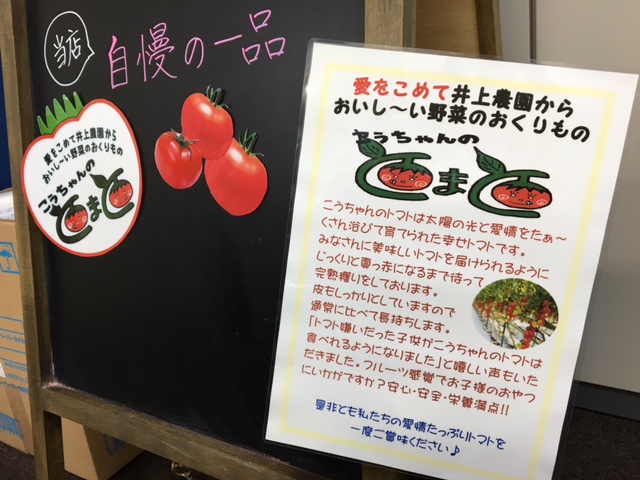 当店
自慢の一品
愛をこめて井上農園から
おいし~い野菜のおくりもの
こうちゃんの
とまと
愛をこめて井上農園から
おいし~い野菜のおくりもの
こうちゃんの
とまと
こうちゃんのトマトは太陽の光と愛情をたぁ~
くさん浴びて育てられた幸せトマトです。
みなさんに美味しいトマトを届けられるように
じっくりと真っ赤になるまで待って
完熟穫りをしております。
皮もしっかりとしていますので
通常に比べて長持ちします。
「トマト嫌いだった子供がこうちゃんのトマトは
食べれるようになりました」と嬉しい声もいた
だきました。フルーツ感覚でお子様のおやつ
にいかがですか?安心・安全・栄養満点!!
是非とも私たちの愛情たっぷりトマトを
一度ご賞味ください♪